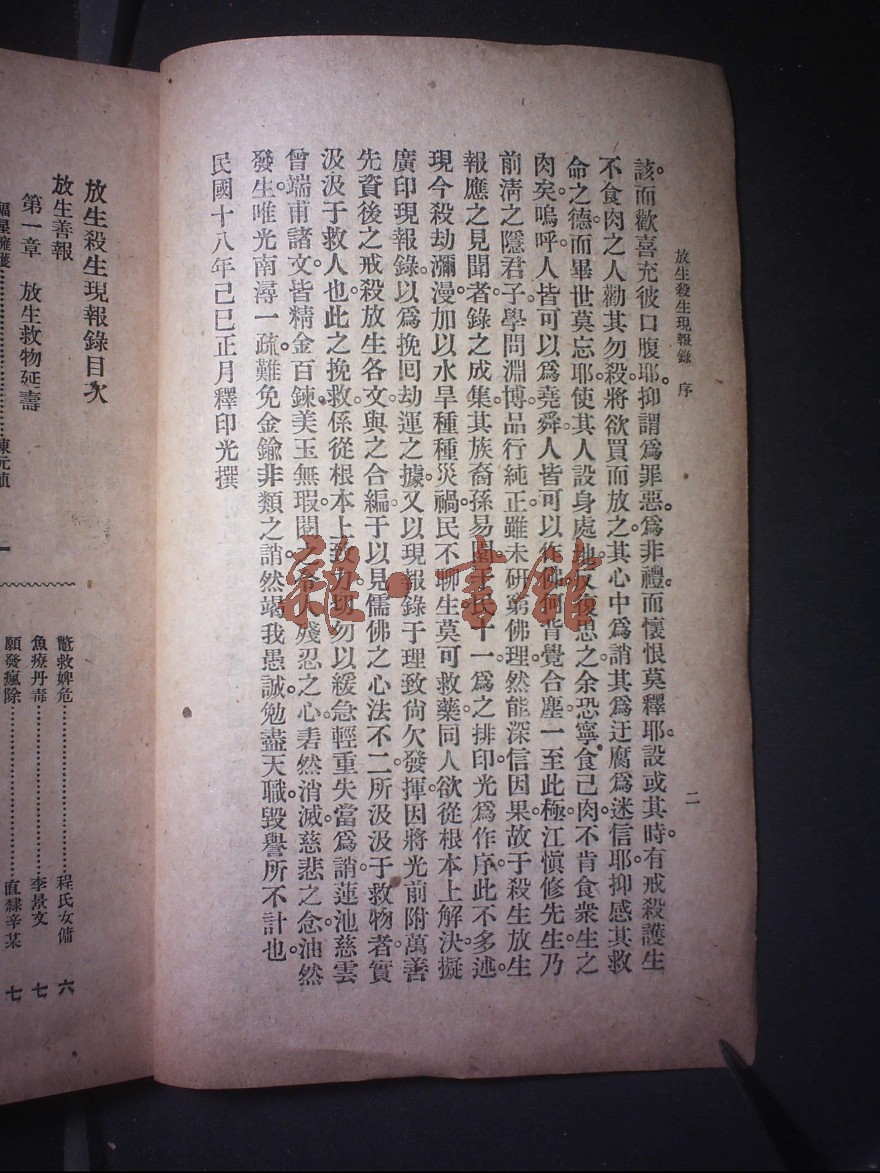 放生殺生現報錄 序
二
該。而歡喜充彼口腹耶。抑謂為罪惡。為非禮。而懷恨莫釋耶。設或其時。有戒殺護生
不食肉之人。勸其勿殺。將欲買而放之。其心中為誚其為迂腐為迷信耶。抑感其救
命之德。而畢世莫忘耶。使其人設身處地。反復思之。余恐寧食己肉。不肯食衆生之
肉矣。嗚呼。人皆可以為堯舜。人皆可以作佛。何背覺合塵。一至此極。江愼修先生。乃
前淸之隱君子。學問淵博。品行純正。雖未研窮佛理。然能深信因果。故于殺生放生
報應之見聞者。錄之成集。其族裔孫易園
十一。為之排印。光為作序。此不多述。
現今殺劫瀰漫。加以水旱種種災禍。民不聊生。莫可救藥。同人欲從根本上解決。擬
廣印現報錄。以為挽回劫運之據。又以現報錄于理致尙欠發揮。因將光前附萬善
先資後之戒殺放生各文。與之合編。于以見儒佛之心法不二。所汲汲于救物者。實
汲汲于救人也。此之挽救。係從根本上致力。切勿以緩急輕重失當為誚。蓮池慈雲
曾端甫諸文。皆精金百鍊。美玉無瑕。閱之。令人殘忍之心。砉然消滅。慈悲之念。油然
發生。唯光南潯一疏。難免金鍮非類之誚。然竭我愚誠。勉盡天職。毀譽所不計也。
民國十八年己巳正月釋印光撰
雜·書館
放生殺生現報錄目次
放生善報
第一章 放生救物延壽
福星擁護……陳元植 一
鼈救婢危……程氏女傭 六
魚療丹毒……李景文 七
願發瘋除……直隸辛某 七